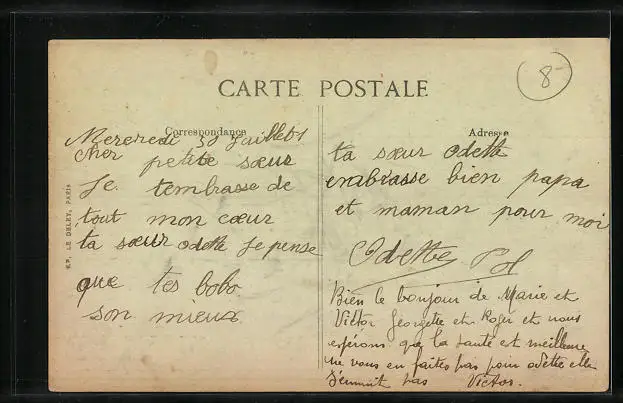 CARTE POSTALE
8
Correspondance
Adresse
E.P. LE DELEY, PARIS
Mercredi 30 Juillet
cher petite sœur
Je tembrasse de
tout mon cœur
ta sœur odette Je pense
que tes bobo
son mieux
ta sœur odette
embrasse bien papa
et maman pour moi
Odette
Bien le bonjour de Marie et
Victor Georgette et Roger et nous
espérons que la santé est meilleure
ne vous en faites pas pour odette elle
s'ennuit pas Victor.